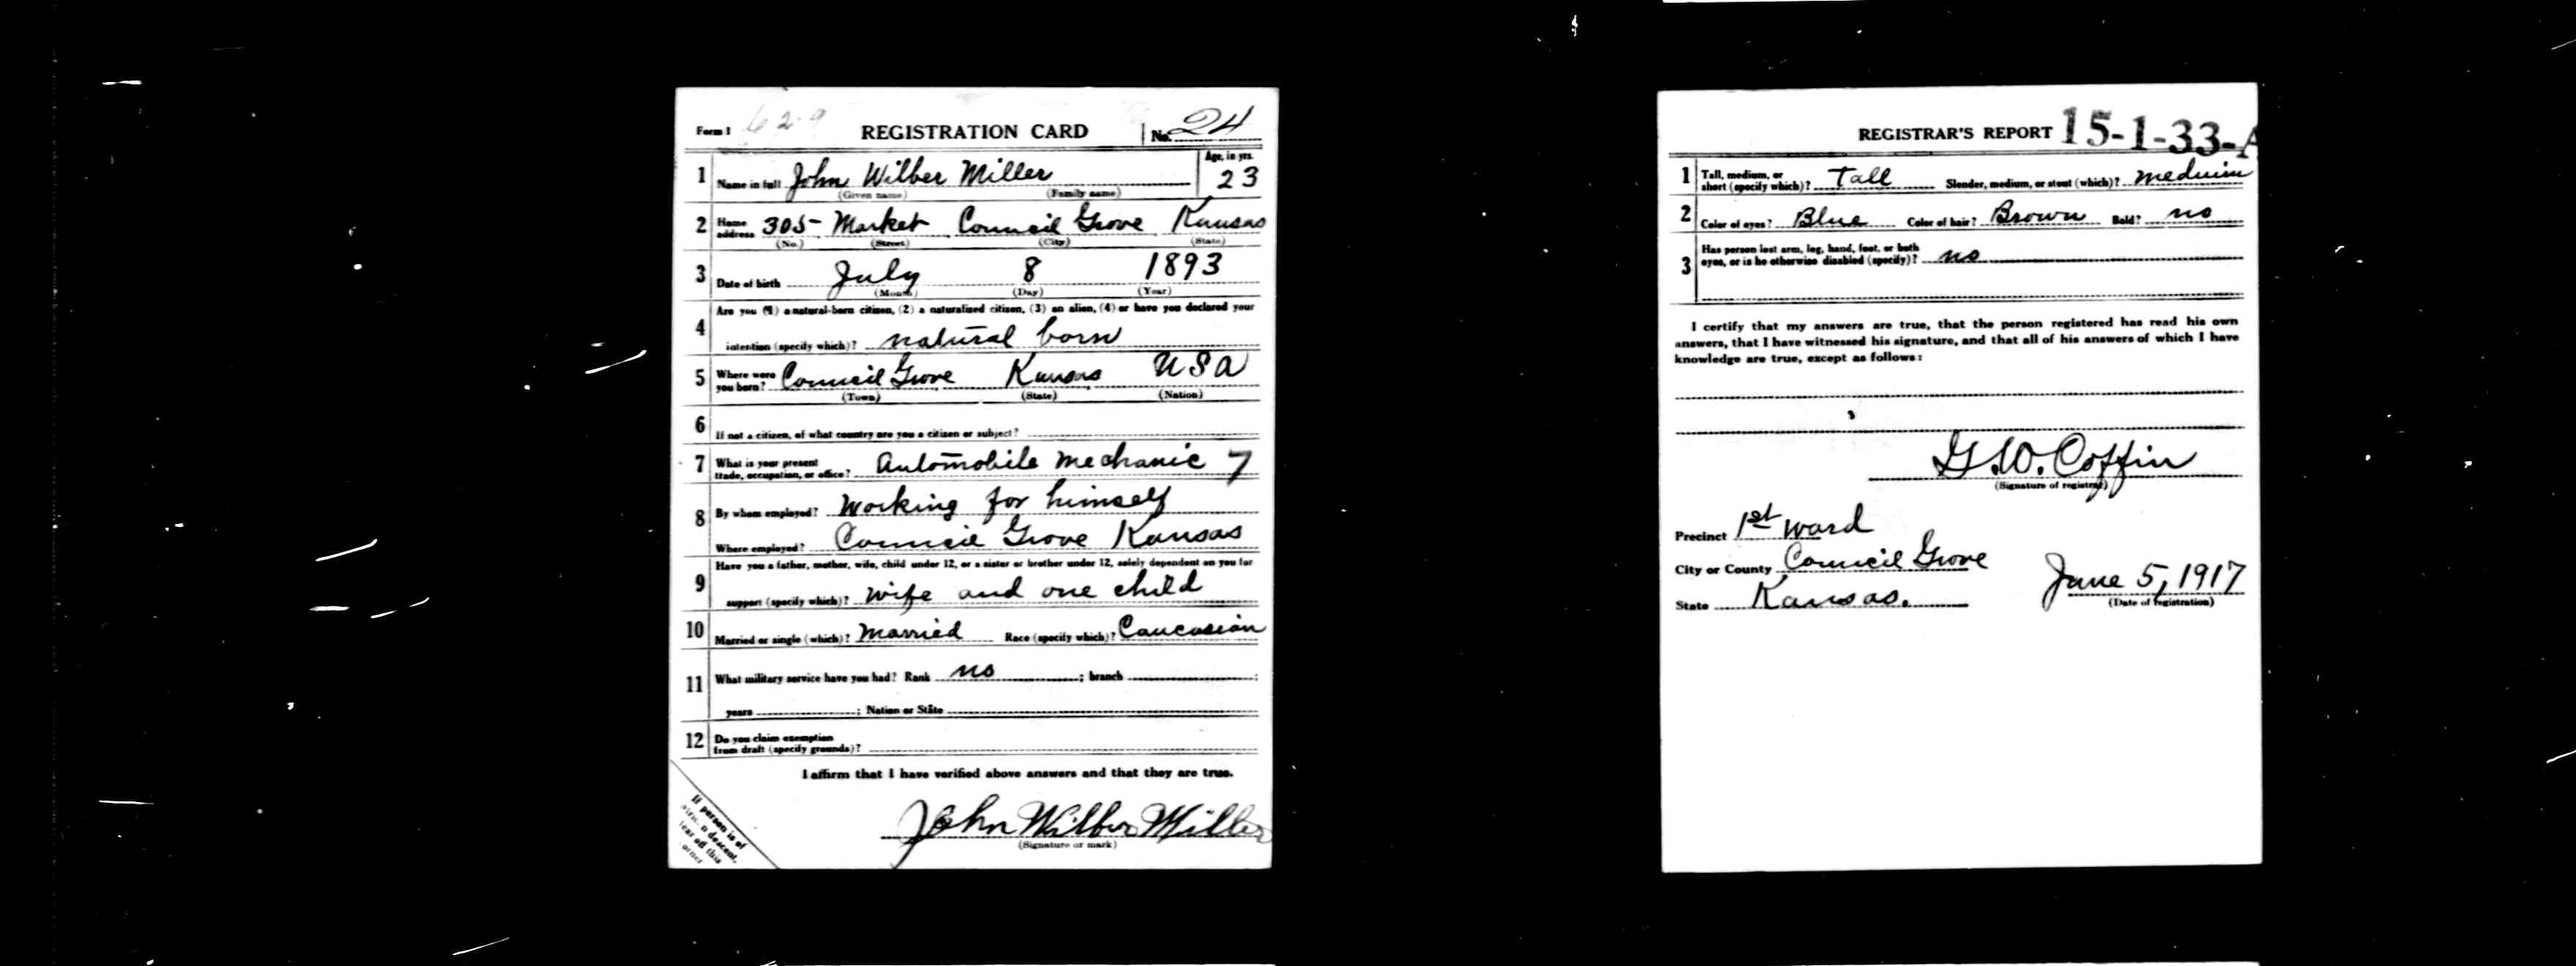 Form 1 629 REGISTRATION CARD No. 24
1 Name in full John Wilber Miller Age, in yrs. 23
(Given name) (Family name)
2 Home address 305 Market Council Grove Kansas
(No.) (Street) (City) (State)
3 Date of birth July 8 1893
(Month) (Day) (Year)
4 Are you (1) a natural-born citizen, (2) a naturalized citizen, (3) an alien, (4) or have you declared your
intention (specify which)? natural born
5 Where were you born? Council Grove Kansas USA
(Town) (State) (Nation)
6 If not a citizen, of what country are you a citizen or subject?
7 What is your present trade, occupation, or office? Automobile mechanic 7
8 By whom employed? Working for himself
Where employed? Council Grove Kansas
9 Have you a father, mother, wife, child under 12, or a sister or brother under 12, solely dependent on you for
support (specify which)? wife and one child
10 Married or single (which)? Married Race (specify which)? Caucasian
11 What military service have you had? Rank no ; branch ;
years ; Nation or State
12 Do you claim exemption
from draft (specify grounds)?
I affirm that I have verified above answers and that they are true.
John Wilber Miller
(Signature or mark)
If person is of
descent,
off this
REGISTRAR'S REPORT 15-1-33-A
1 Tall, medium, or short (specify which)? Tall Slender, medium, or stout (which)? medium
2 Color of eyes? Blue Color of hair? Brown Bald? no
3 Has person lost arm, leg, hand, foot, or both
eyes, or is he otherwise disabled (specify)? no
I certify that my answers are true, that the person registered has read his own
answers, that I have witnessed his signature, and that all of his answers of which I have
knowledge are true, except as follows:
G.W. Coffin
(Signature of registrar)
Precinct 1st Ward
City or County Council Grove
State Kansas.
June 5, 1917
(Date of registration)